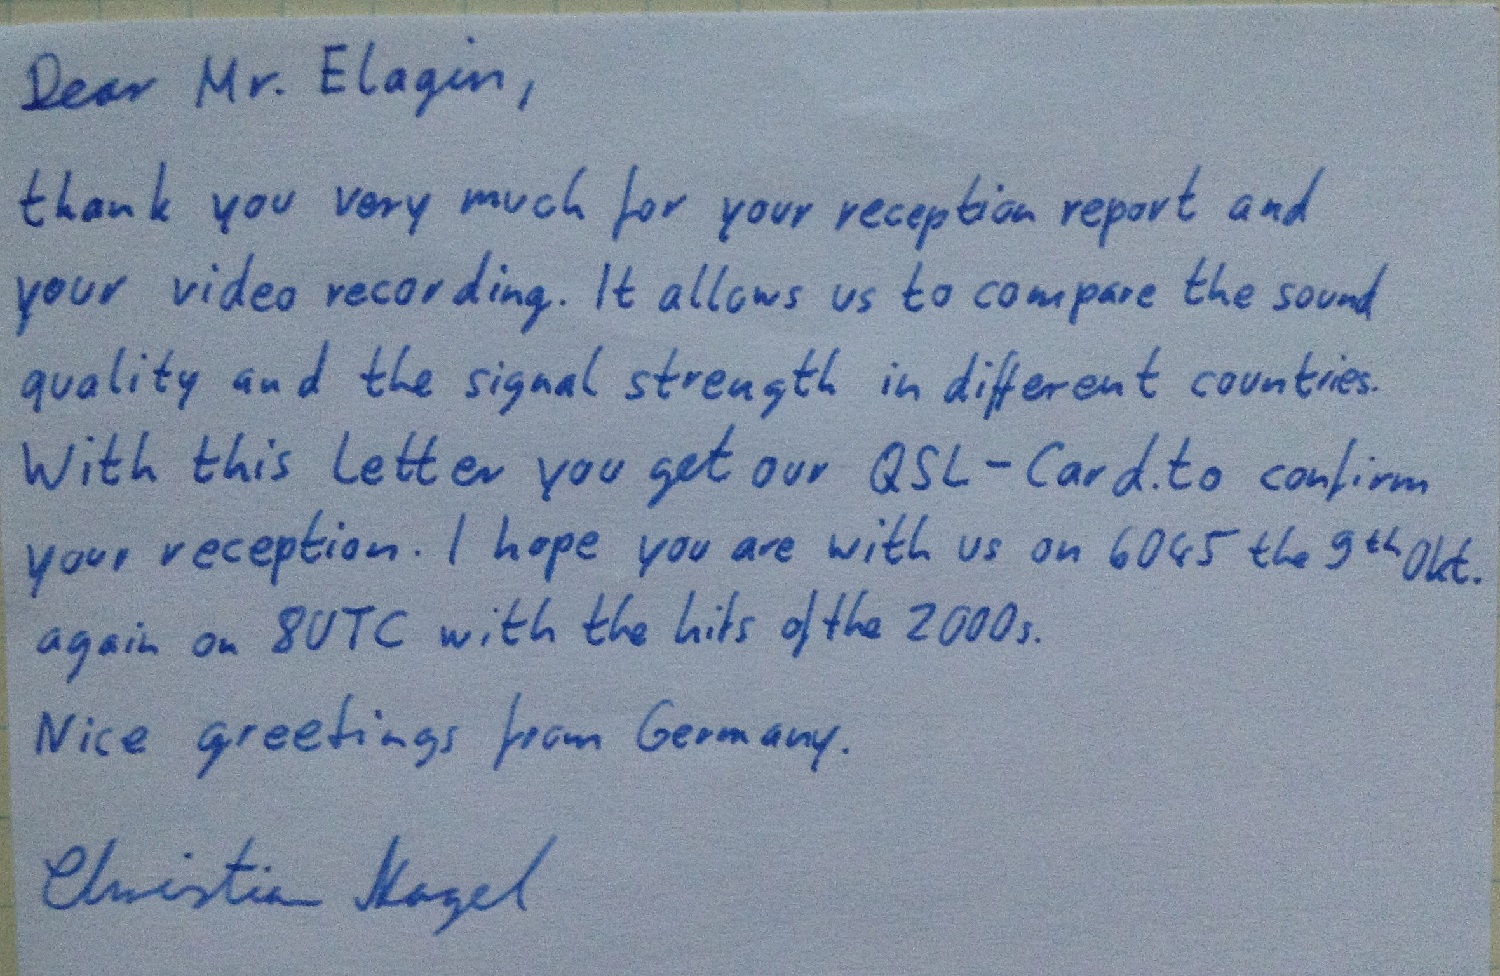 Dear Mr. Elagin,
thank you very much for your reception report and
your video recording. It allows us to compare the sound
quality and the signal strength in different countries.
With this letter you get our QSL-Card.to confirm
your reception. I hope you are with us on 6045 the 9th Okt.
again on 8UTC with the hits of the 2000s.
Nice greetings from Germany.
Christian